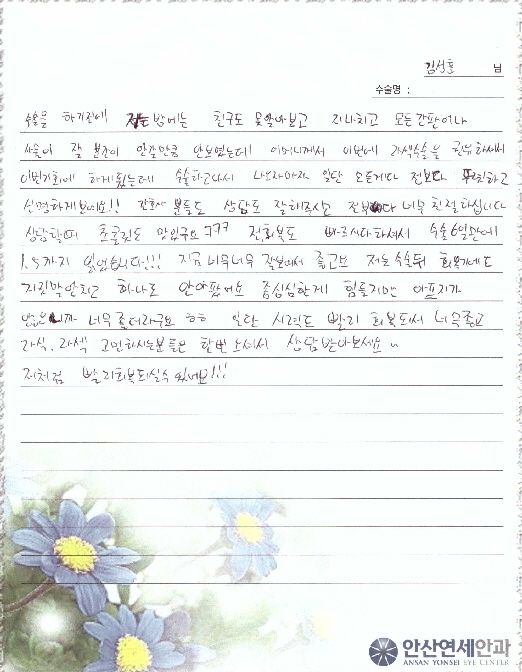 김성훈 님
수술명 :
수술을 하기전에 저는 밤에는 친구도 못알아보고 지나치고 모든간판이나
사물이 잘 분간이 안갈만큼 안보였는데! 어머니께서 이번에 라섹수술을 권유하셔서
이번기회에 하게됬는데 수술하고나서 나오자마자 일단 모든게다 전보다 뚜렷하고
선명하게보여요!! 간호사 분들도 상담도 잘해주시고 전부다 너무 친절하십니다
상담할때 초콜릿도 있구요ㅋㅋㅋ 전 회복도 빠르시다하셔서 수술6일만에
1.5까지 왔었습니다!!! 지금너무너무 잘보여서 좋고요 저는수술뒤 회복기에도
지짓막안치고 하나도 안아팠어요 중심심한게 힘들지만 아프지가
않으니까 너무좋더라구요 ㅎㅎ 일단 시력도 빨리 회복되서 너무좋고
라식,라섹 고민하시는분들은 한번 오셔서 상담받아보세요
저처럼 빨리회복되실수 있어요!!!
안산연세안과
ANSAN YONSEI EYE CENTER